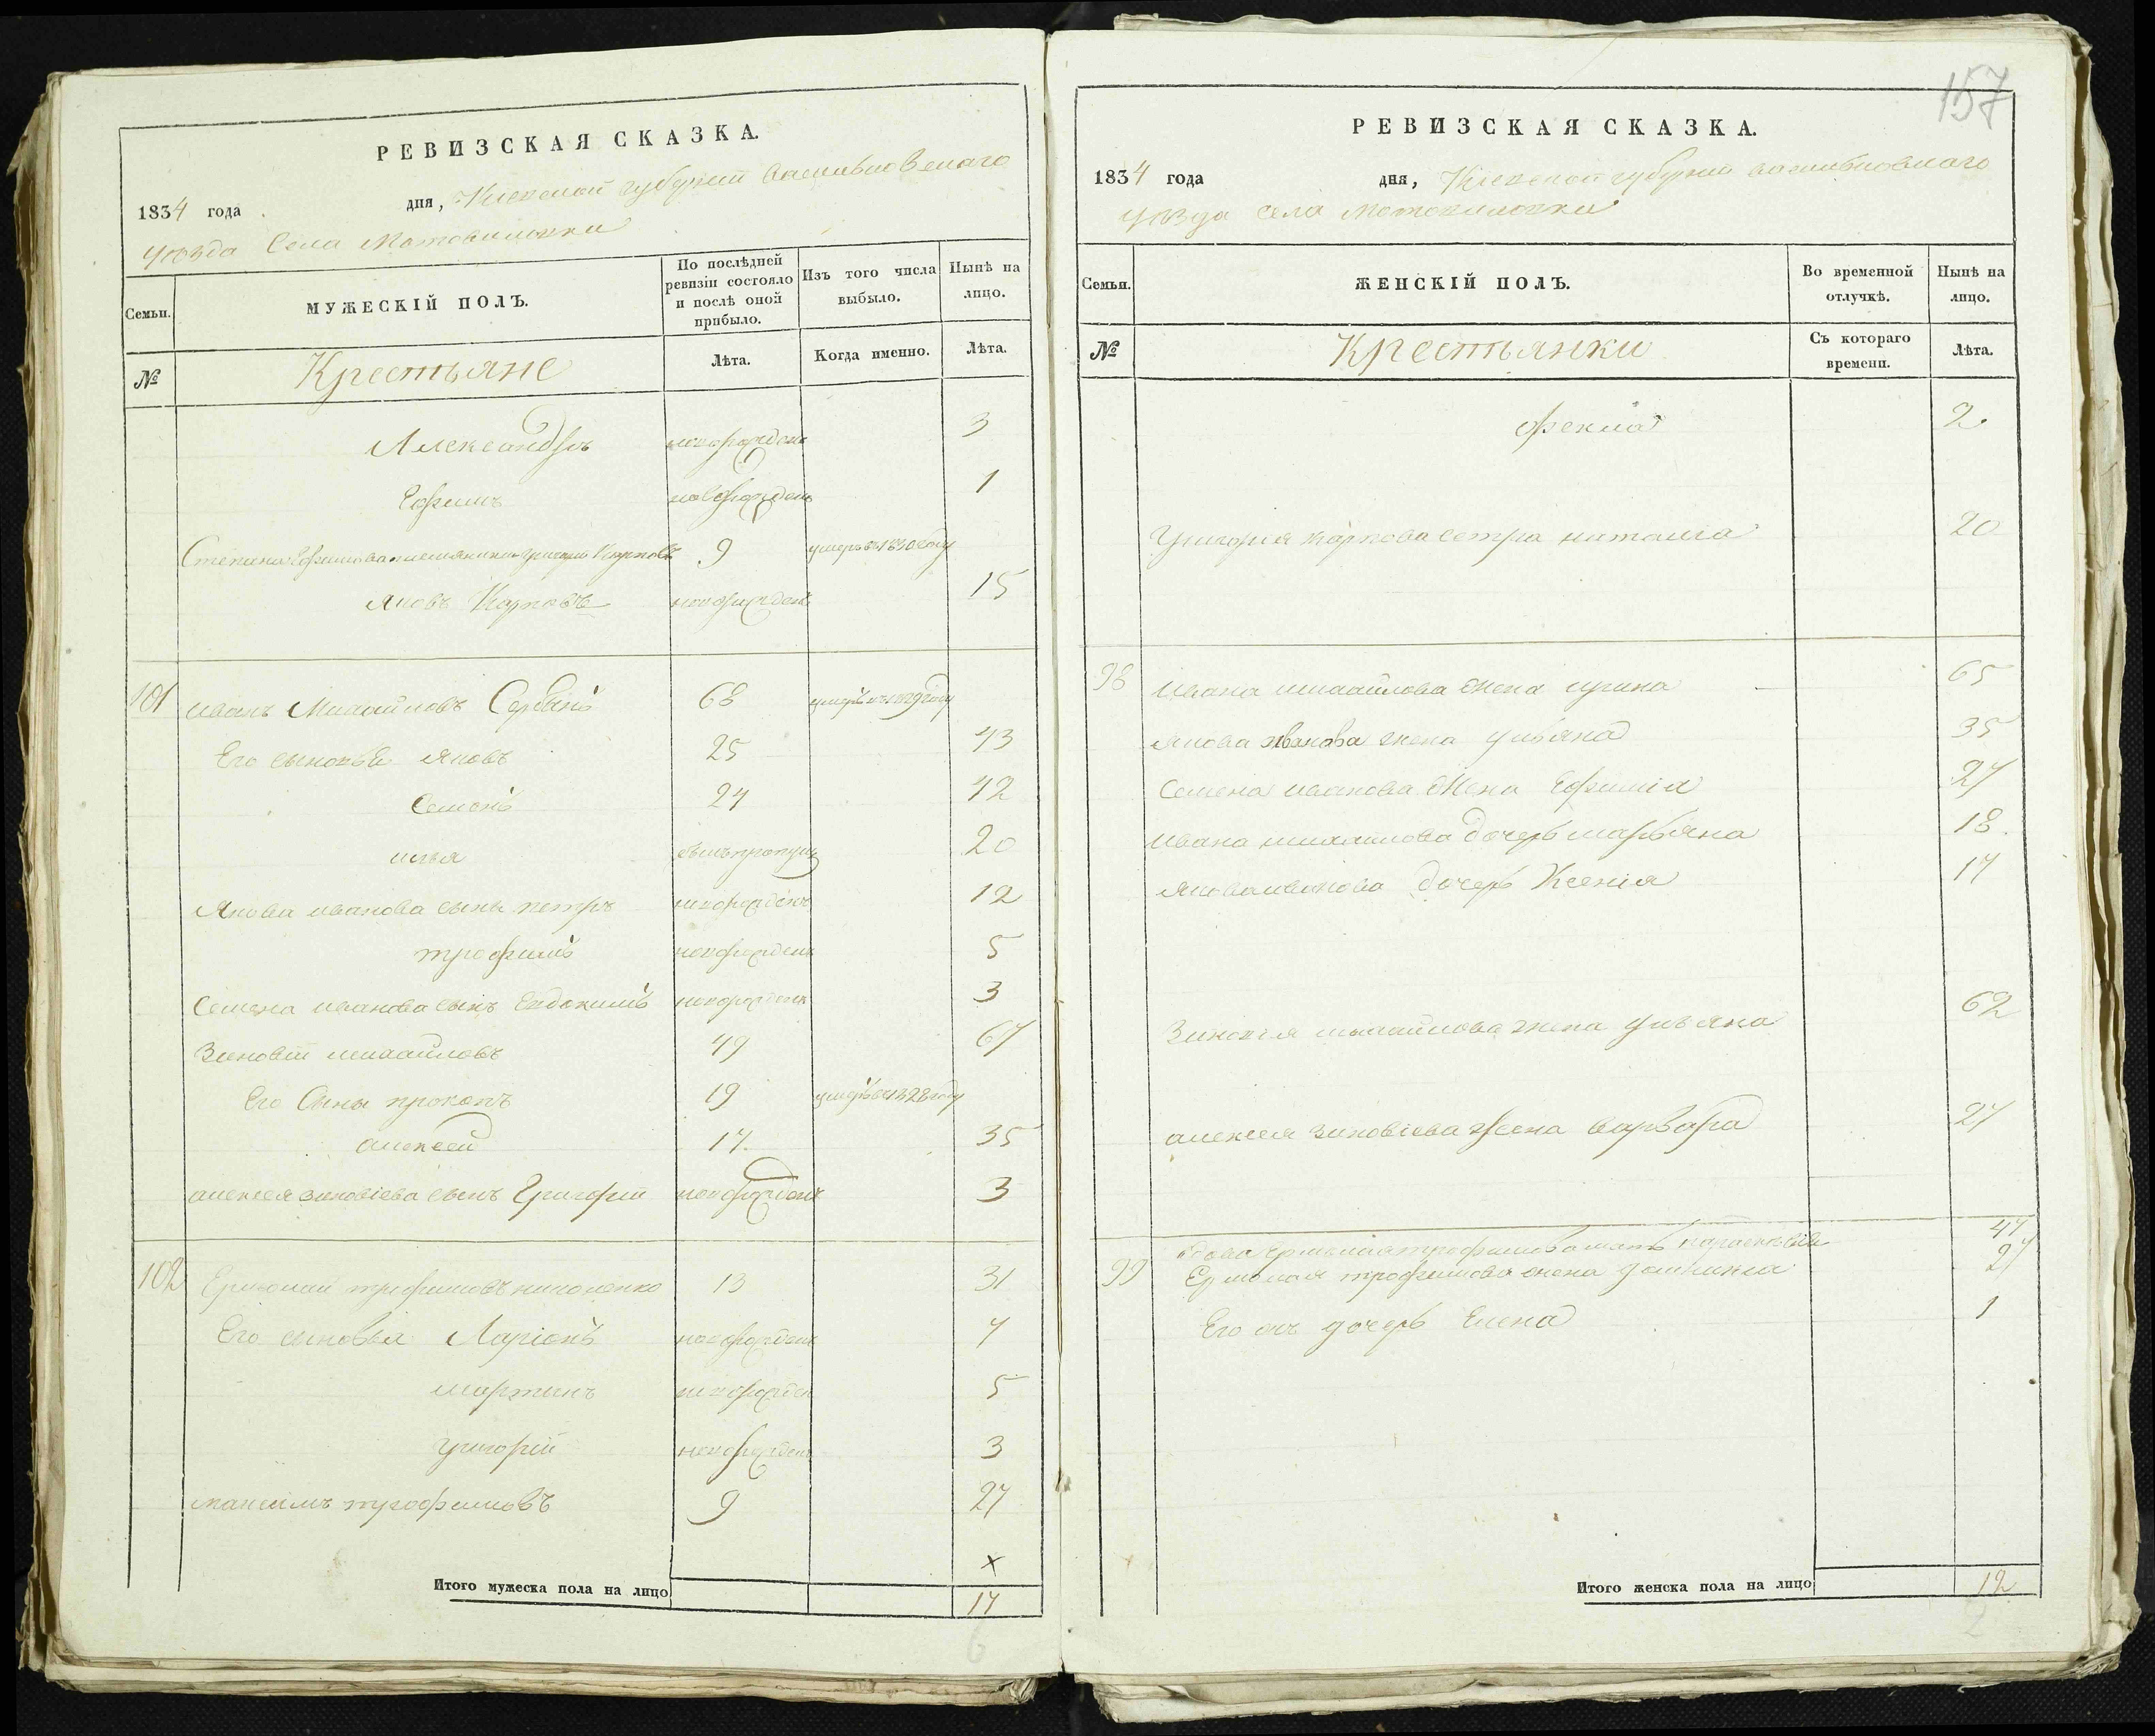 РЕВИЗСКАЯ СКАЗКА.
1834 года дня, Киевской губернии Васильковскаго
уѣзда Села Мотовиловки
Семьи.
МУЖЕСКІЙ ПОЛЪ.
По послѣдней ревизіи состояло и послѣ оной прибыло.
Изъ того числа выбыло.
Нынѣ на лицо.
№
Крестьяне
Лѣта.
Когда именно.
Лѣта.
Александръ новорожденъ 3
Ефимъ новорожденъ 1
Степана Ефимова племянникъ Григорій Карповъ 9 умеръ въ 1830 году
Яковъ Карповъ новорожденъ 15
101 Иванъ Михайловъ Сербинъ 68 умеръ въ 1829 году
Его сыновья Яковъ 25 43
Семенъ 24 42
Илья былъ пропущ 20
Якова Иванова сынъ Петръ новорожденъ 12
Трофимъ новорожденъ 5
Семена Иванова сынъ Евдокимъ новорожденъ 3
Зиновій Михайловъ 49 67
Его Сыны Прокопъ 19 умеръ въ 1828 году
Алексей 17. 35
Алексея Зиновіева сынъ Григорій новорожденъ 3
102 Ермолай Трофимовъ Николенко 13 31
Его сыновья Ларіонъ новорожденъ 7
Мартынъ новорожден 5
Григорій новорожден 3
Максимъ Трофимовъ 9 27
х
Итого мужеска пола на лицо 17
6
157
РЕВИЗСКАЯ СКАЗКА.
1834 года дня, Киевской губернии Васильковскаго
уѣзда Села Мотовиловки
Семьи.
ЖЕНСКІЙ ПОЛЪ.
Во временной отлучкѣ.
Нынѣ на лицо.
№
Крестьянки
Съ котораго времени.
Лѣта.
Фекла 2.
Григорія Карпова сетра Наталія 20
98 Ивана Михайлова жена Ирина 65
Якова Иванова жена Ульяна 35
Семена Иванова Жена Ефимія 27
Ивана Михайлова дочерь Марьяна 18.
Якова Иванова дочерь Ксенія 17
Зиновія Михайлова жена Ульяна 62
Алексея Зиновіева жена Варвара 27
вдова Ермолая Трофимова мать 47
99 Ермолая Трофимова жена 27
Его же дочерь Елена 1
Итого женска пола на лицо 12
2